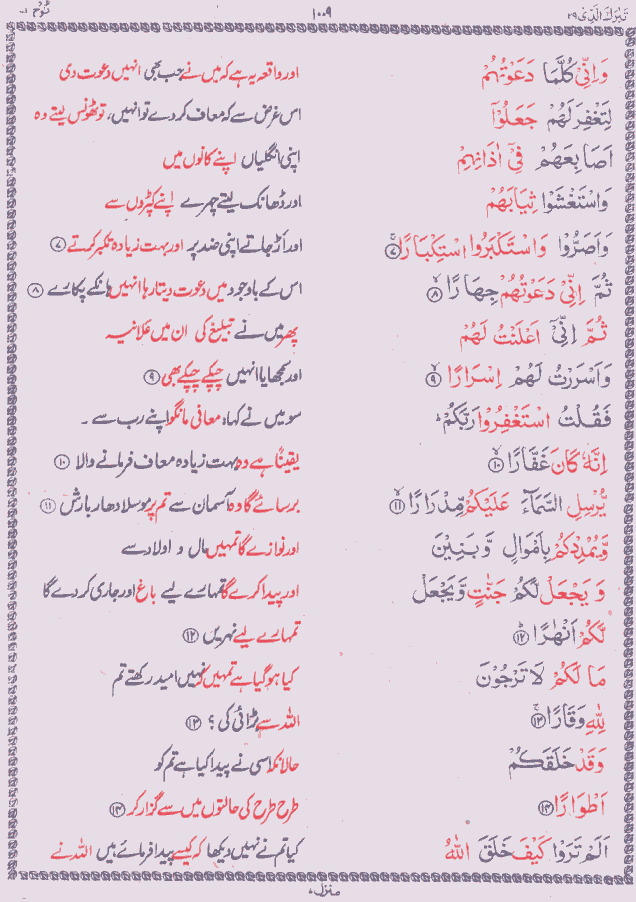 تَبٰرَكَ الَّذِیْ ٢٩
١٠٠٩
نُوْح ٧١
وَاِنِّیْ كُلَّمَا دَعَوْتُهُمْ
اور واقعہ یہ ہے کہ میں نے جب بھی انہیں دعوت دی
لِتَغْفِرَ لَهُمْ جَعَلُوْۤا
اس غرض سے کہ معاف کر دے تو انہیں، تو ٹھونس لیتے وہ
اَصَابِعَهُمْ فِیْۤ اٰذَانِهِمْ
اپنی انگلیاں اپنے کانوں میں
وَاسْتَغْشَوْا ثِیَابَهُمْ
اور ڈھانک لیتے چہرے اپنے کپڑوں سے
وَاَصَرُّوْا وَاسْتَكْبَرُوا اسْتِكْبَارًا ۚ ﴿٧﴾
اور اَڑ جاتے اپنی ضد پر اور بہت زیادہ تکبر کرتے ﴿٧﴾
ثُمَّ اِنِّیْ دَعَوْتُهُمْ جِهَارًا ۙ ﴿٨﴾
اس کے باوجود میں دعوت دیتا رہا انہیں ہانکے پکارے ﴿٨﴾
ثُمَّ اِنِّیْۤ اَعْلَنْتُ لَهُمْ
پھر میں نے تبلیغ کی ان میں علانیہ
وَاَسْرَرْتُ لَهُمْ اِسْرَارًا ۙ ﴿٩﴾
اور سمجھایا انہیں چپکے چپکے بھی ﴿٩﴾
فَقُلْتُ اسْتَغْفِرُوْا رَبَّكُمْ ؕ
سو میں نے کہا، معافی مانگو اپنے رب سے ۔
اِنَّهٗ كَانَ غَفَّارًا ۙ ﴿١٠﴾
یقیناً ہے وہ بہت زیادہ معاف فرمانے والا ﴿١٠﴾
یُّرْسِلِ السَّمَآءَ عَلَیْكُمْ مِّدْرَارًا ۙ ﴿١١﴾
برسائے گا وہ آسمان سے تم پر موسلا دھار بارش ﴿١١﴾
وَّیُمْدِدْكُمْ بِاَمْوَالٍ وَّبَنِیْنَ
اور نوازے گا تمہیں مال و اولاد سے
وَیَجْعَلْ لَّكُمْ جَنّٰتٍ وَّیَجْعَلْ
اور پیدا کرے گا تمہارے لیے باغ اور جاری کر دے گا
لَّكُمْ اَنْهٰرًا ؕ ﴿١٢﴾
تمہارے لیے نہریں ﴿١٢﴾
مَا لَكُمْ لَا تَرْجُوْنَ
کیا ہو گیا ہے تمہیں کہ نہیں امید رکھتے تم
لِلّٰهِ وَقَارًا ۚ ﴿١٣﴾
اللہ سے بڑائی کی ؟ ﴿١٣﴾
وَقَدْ خَلَقَكُمْ
حالانکہ اسی نے پیدا کیا ہے تم کو
اَطْوَارًا ﴿١٤﴾
طرح طرح کی حالتوں میں سے گزار کر ﴿١٤﴾
اَلَمْ تَرَوْا كَیْفَ خَلَقَ اللّٰهُ
کیا تم نے نہیں دیکھا کہ کیسے پیدا فرمائے ہیں اللہ نے
منزل ٧